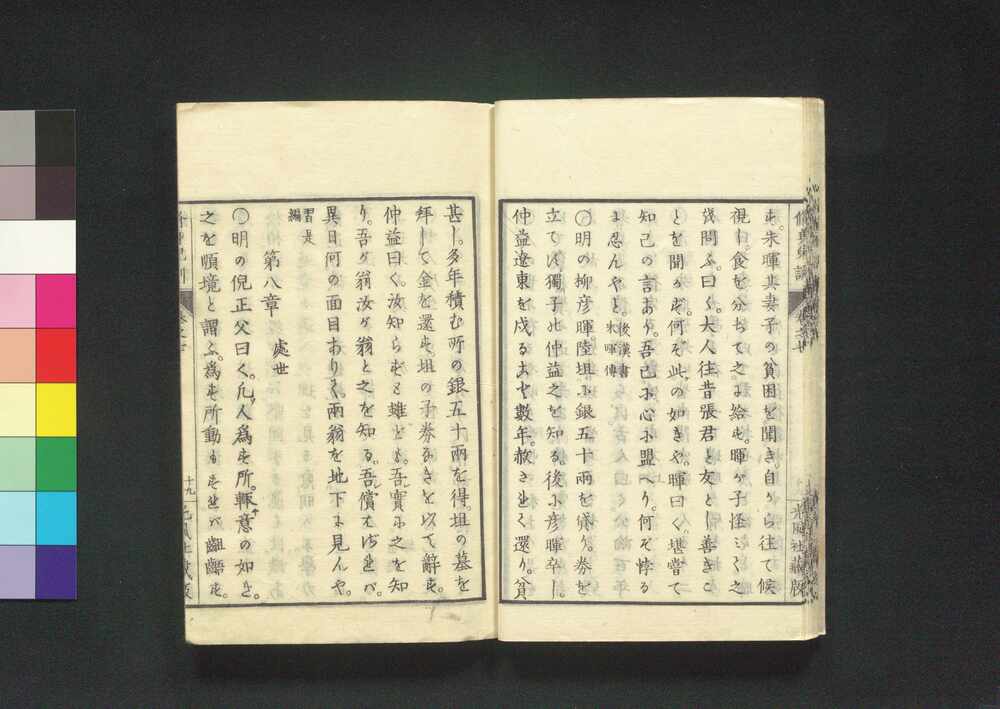 す。朱暉其妻子の貧困を聞き。自から往て候
視し。食を分ちて之に給す。暉が子怪みて之
を問ふ。曰く。大人往昔張君と友とし善きこ
とを聞かず。何ぞ此の如きや。暉曰く。堪嘗て
知己の言あり。吾已に心に盟へり。何ぞ悖る
に忍んやと。後漢書朱暉傳
○明の柳彦暉陸坦に銀五十兩を借り。券を
立てず。獨子仲益之を知る。後に彦暉卒し。
仲益遼東を戍る𪜈數年。赦されて還り。貧
甚し。多年積む所の銀五十兩を得。坦の墓を
拜して金を還す。坦の子券なきを以て辭す。
仲益曰く。汝知らずと雖ども。吾實に之を知
り。吾が翁汝が翁と之を知る。吾償はざれバ。
異日何の面目ありて。兩翁を地下に見んや。
習是編
第八章 處世
○明の倪正父曰く。凡人為す所。輙意の如き。
之を順境と謂ふ。為す所動もすれバ齟齬す。
十九